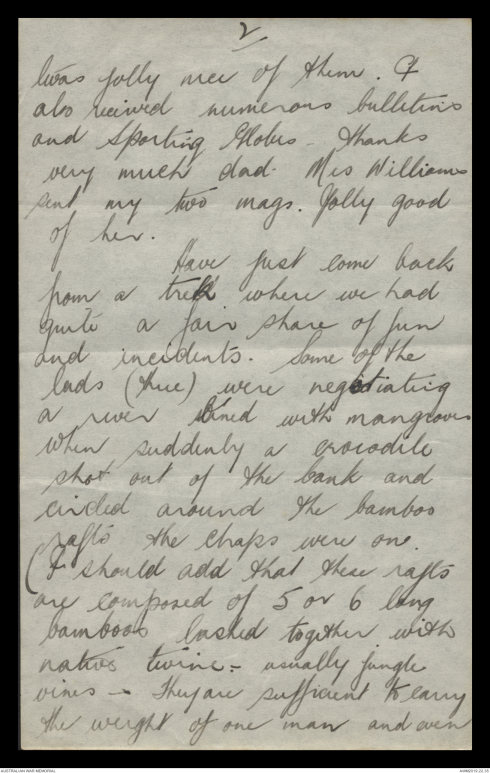 2
was jolly nice of them. I
also received numerous bulletins
and Sporting Globes - thanks
very much dad. Mrs Williams
sent my two mags. Jolly good
of her.
Have just come back
from a trek where we had
quite a fair share of fun
and incidents. Some of the
lads (three) were negotiating
a river lined with mangroves
when suddenly a crocodile
shot out of the bank and
circled around the bamboo
rafts the chaps were one.
(I should add that these rafts
are composed of 5 or 6 long
bamboos lashed together with
native twine - usually jungle
vines - They are sufficient to carry
the weight of one man and even
AUSTRALIAN WAR MEMORIAL